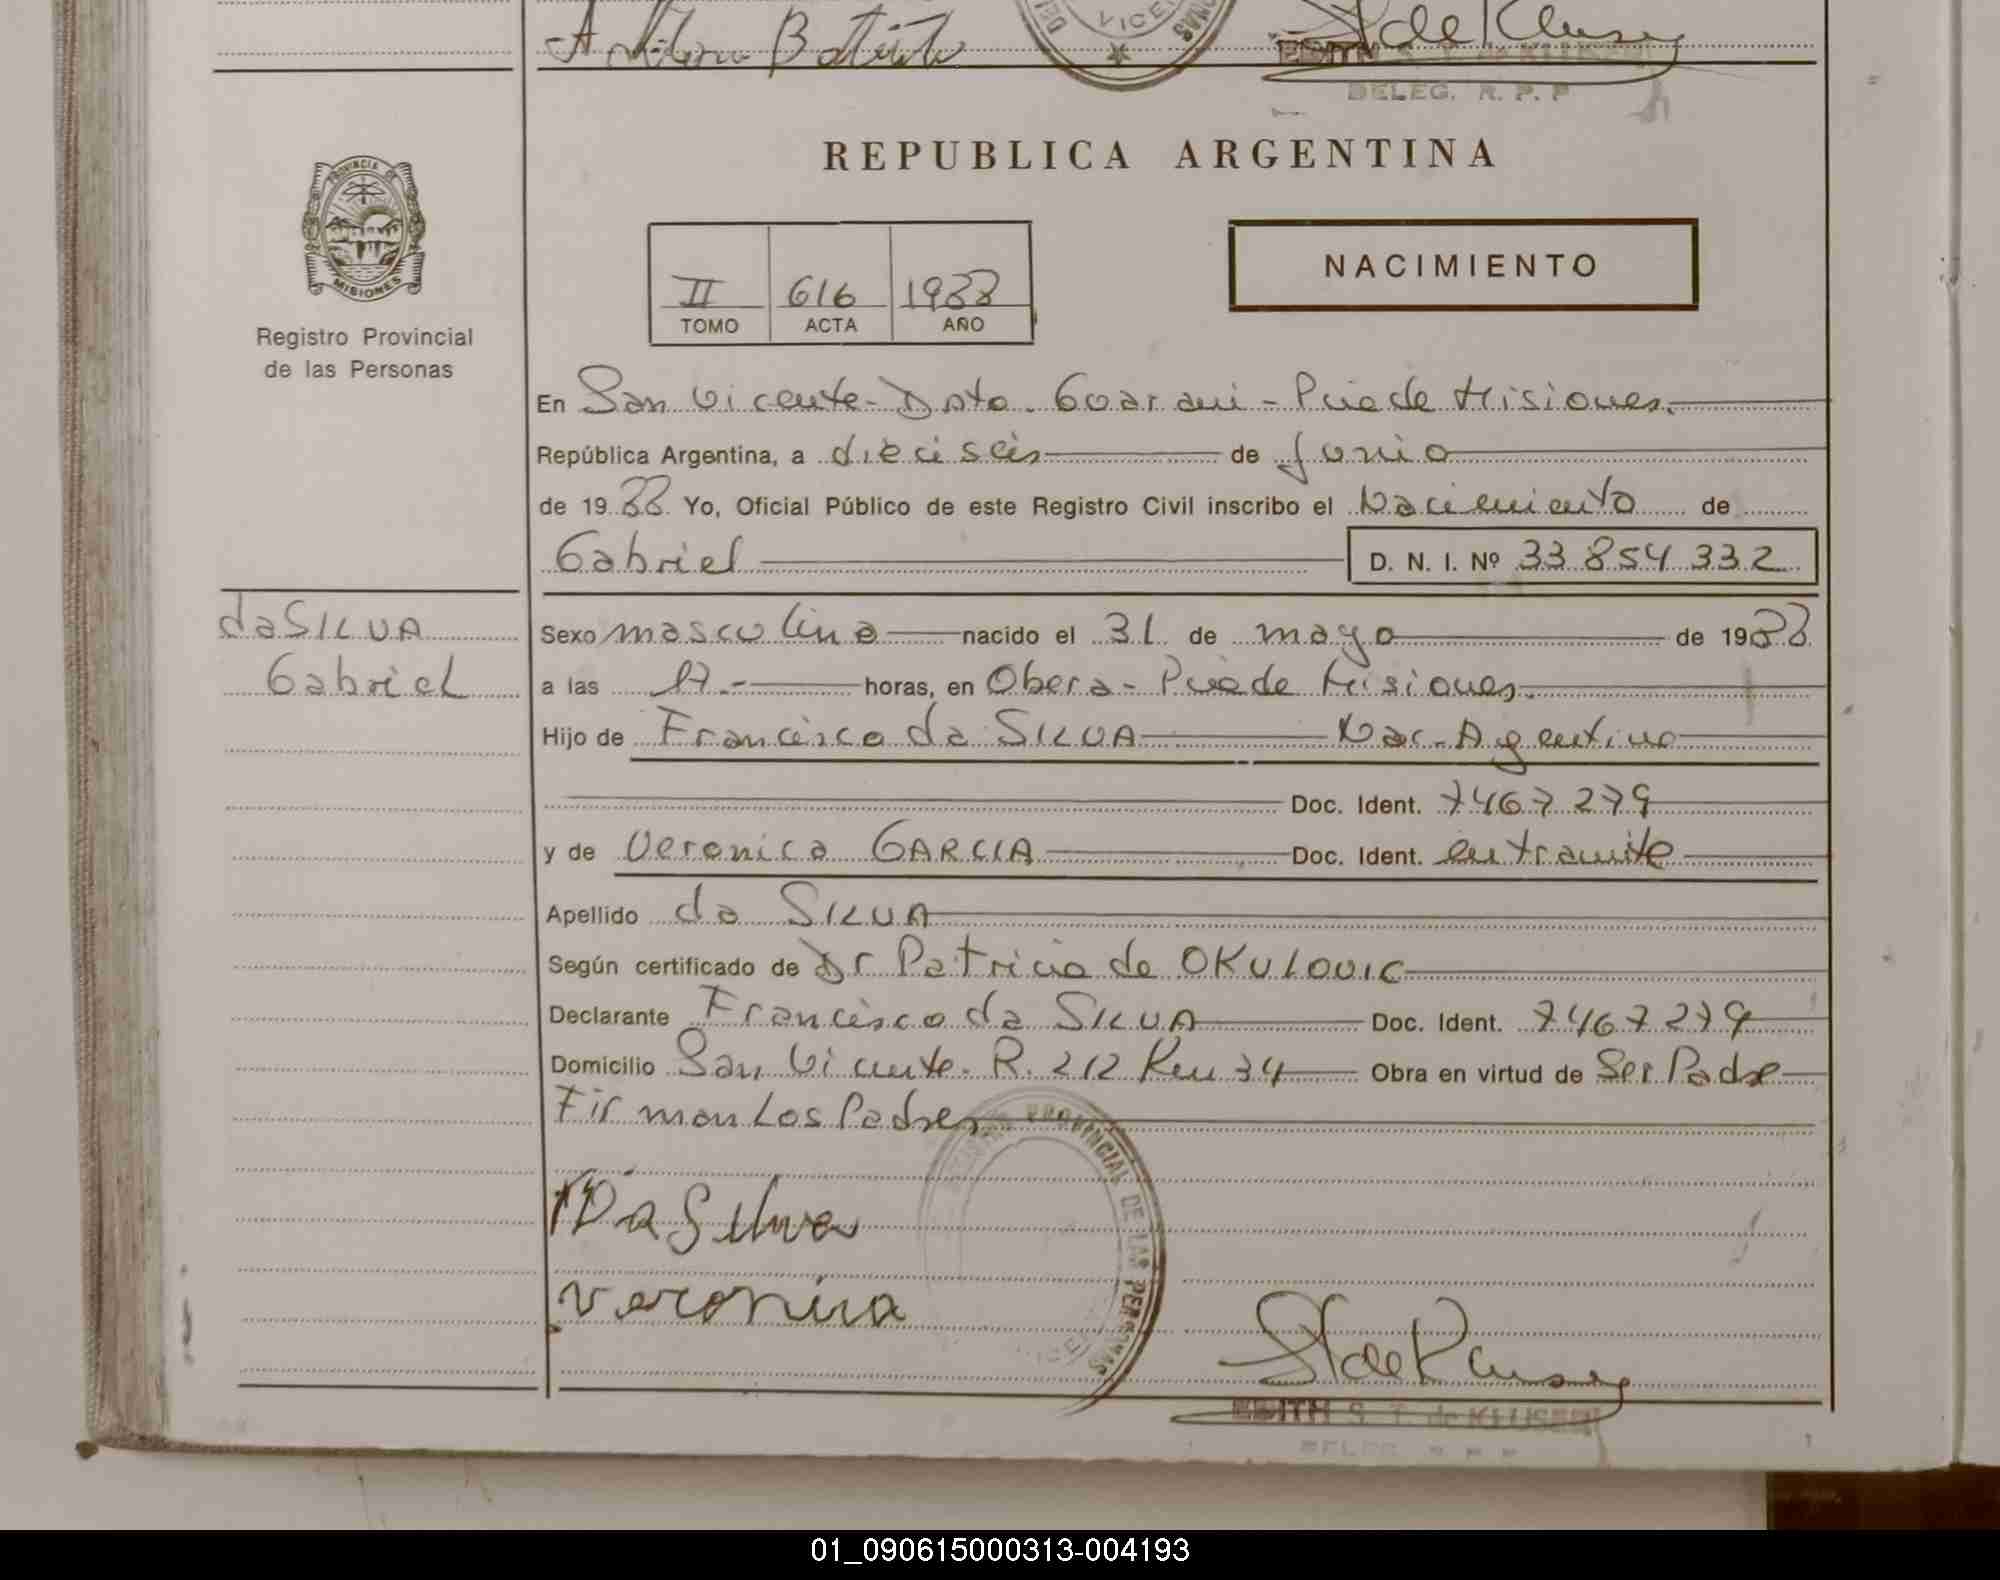 Batista
VICE
St de Kluse
EDITH S. T. de KLUSEN
DELEG. R. P. P
PROVINCIA DE
MISIONES
Registro Provincial
de las Personas
REPUBLICA ARGENTINA
NACIMIENTO
II 616 1988
TOMO ACTA AÑO
En San Vicente - Dpto. Guarani - Pcia de Misiones.
República Argentina, a dieciseis de Junio
de 1988 Yo, Oficial Público de este Registro Civil inscribo el Nacimiento de
Gabriel D. N. I. Nº 33 854 332
da SILVA
Gabriel
Sexo masculino nacido el 31 de mayo de 1988
a las 17.- horas, en Obera - Pcia de Misiones.
Hijo de Francisco da SILVA Nac. Argentino
Doc. Ident. 7467279
y de Veronica GARCIA Doc. Ident. en tramite
Apellido da SILVA
Según certificado de Dr Patricia de OKULOVIC
Declarante Francisco da SILVA Doc. Ident. 7467279
Domicilio San Vicente - R. 212 Km 34 Obra en virtud de Ser Padre
Firman Los Padres
Da Silva
Veronica
PROVINCIAL DE LAS PERSONAS
St de Kluse
EDITH S. T. de KLUSEN
DELEG. R. P. P
01_090615000313-004193